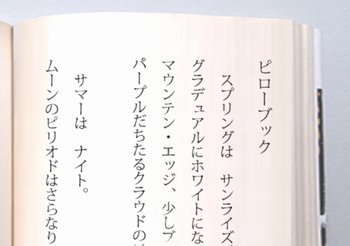 ピローブック
スプリングは サンライズ、
グラデュアルにホワイトにな
マウンテン・エッジ、少しブ
パープルだちたるクラウドの
サマーは ナイト。
ムーンのピリオドはさらなり